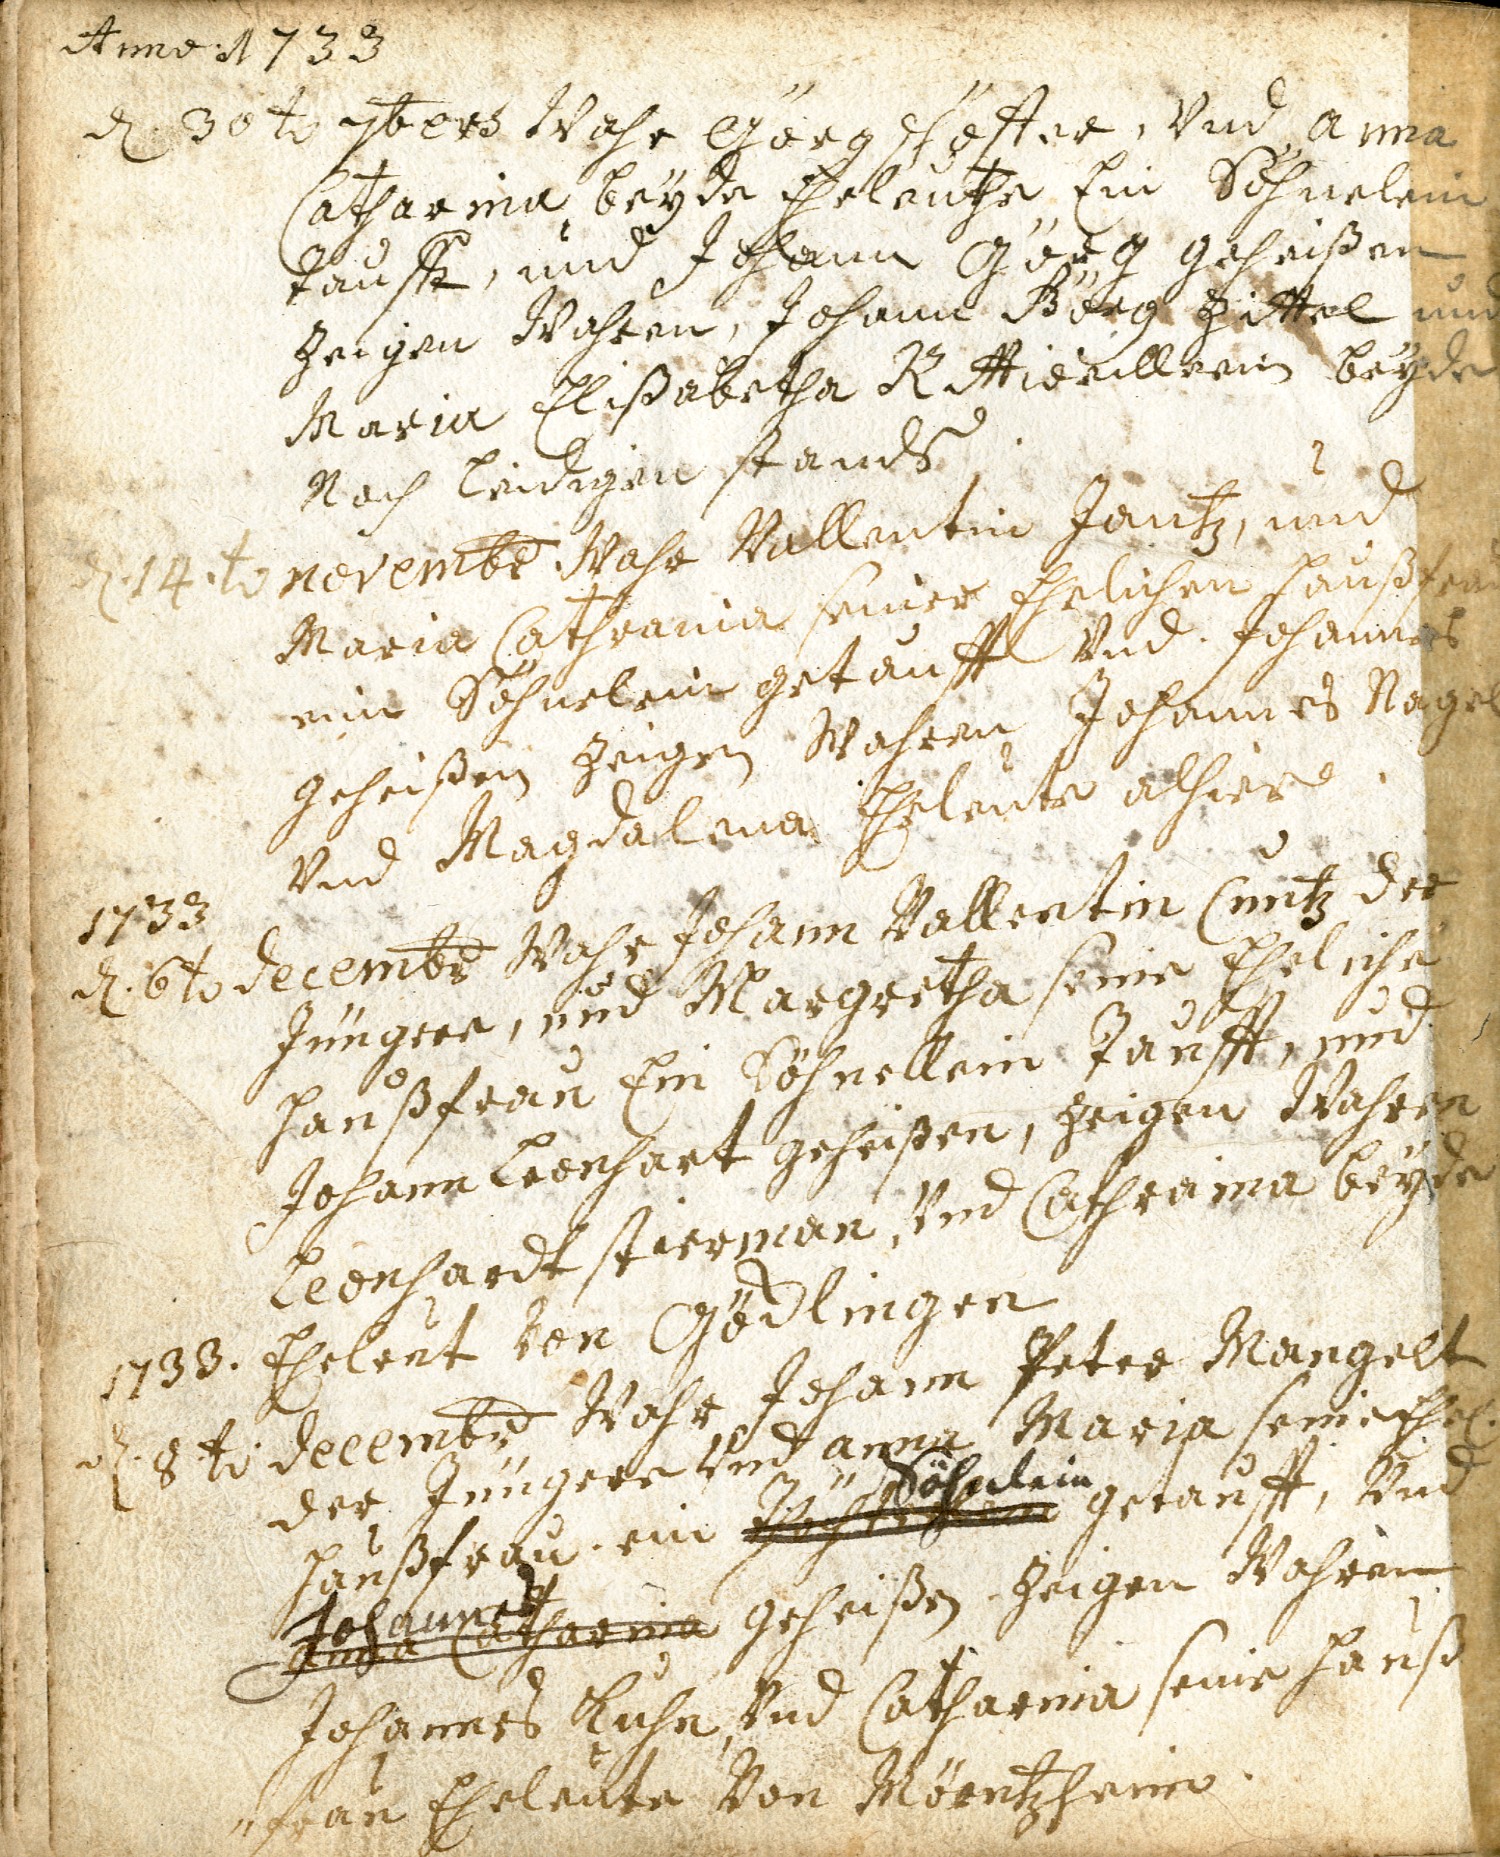 Anno: 1733
d. 30 to 7bers Wahr Görg , Vnd Anna
Catharina beyde Eheleuthe Ein Söhnelein
Taufft, und Johann Görg geheißen
Zeigen Wahren, Johann Börg Zittel und
Maria Elißabetha beyde
Noch leidigen stands
d. 14. to novembr Wahr Vallentin Jantz, und
Maria Cathrania seiner Ehelichen haußfrau
ein Söhnelein getaufft Vnd Johannes
geheißen Zeigen Wahren Johannes Nagel
Vnd Magdalena Eheleute alhier
1733
d. 6 to decembr Wahr Johann Vallentin Cuntz der
Jüngere, und Margretha seine Eheliche
haußfrau Ein Söhnellein Taufft, und
Johann Leonhart geheißen, Zeigen Wahren
Leonhardt stierman, Vnd Cathraina beyde
Eheleut Von Gödlingen
1733.
d. 8 to decembr Wahr Johann Peter Mangelt
der Jüngere Vnd anna Maria seine Ehel.
Söhnlein
haußfrau ein getaufft, Vnd
Johannes
Anna Catharina geheißen Zeigen Wahren
Johannes Kuhn, Vnd Catharina seine hauß
"frau Eheleute Von Mörntzheim